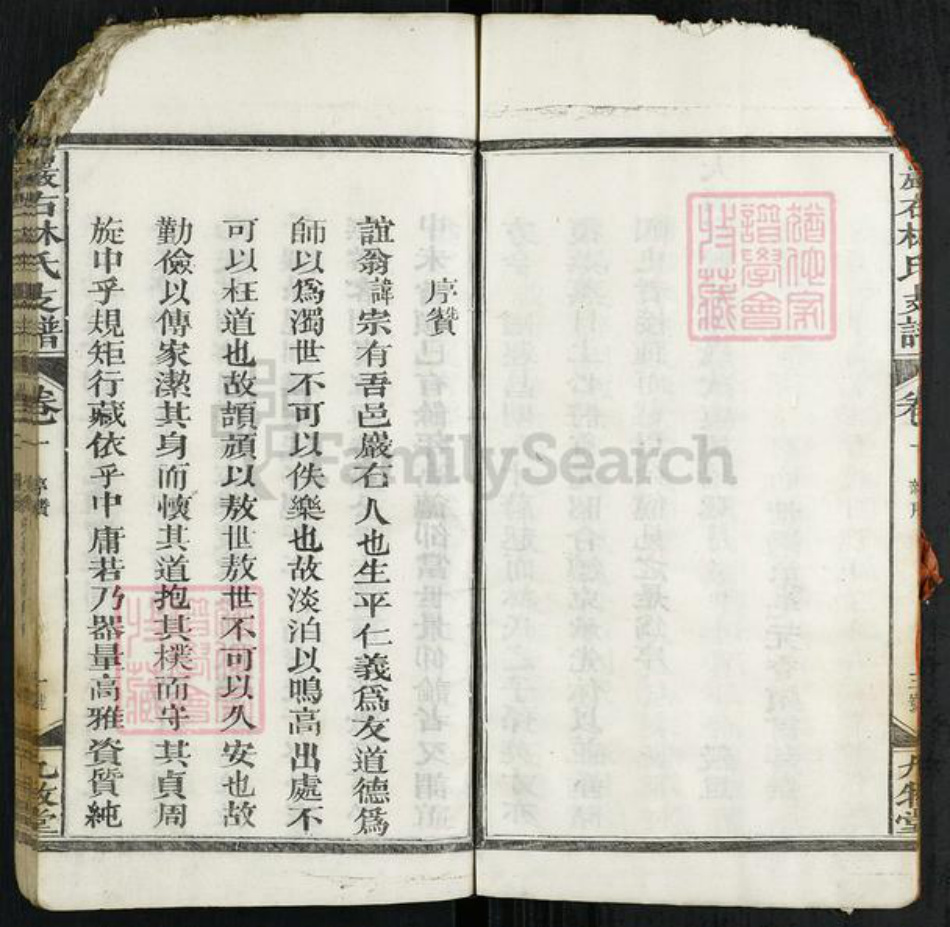 巖右林氏支譜
卷
序贊
誼翁諱宗有吾邑巖右人也生平仁義爲友道德爲
師以爲濁世不可以佚樂也故淡泊以鳴高出處不
可以枉道也故頡頏以敖世敖世不可以久安也故
勤儉以傳家潔其身而懷其道抱其樸而守其貞周
旋中乎規矩行藏依乎中庸若乃器量高雅資質純
巖右林氏支譜
卷一
序贊
九牧堂
譜學會
收藏
FamilySearch